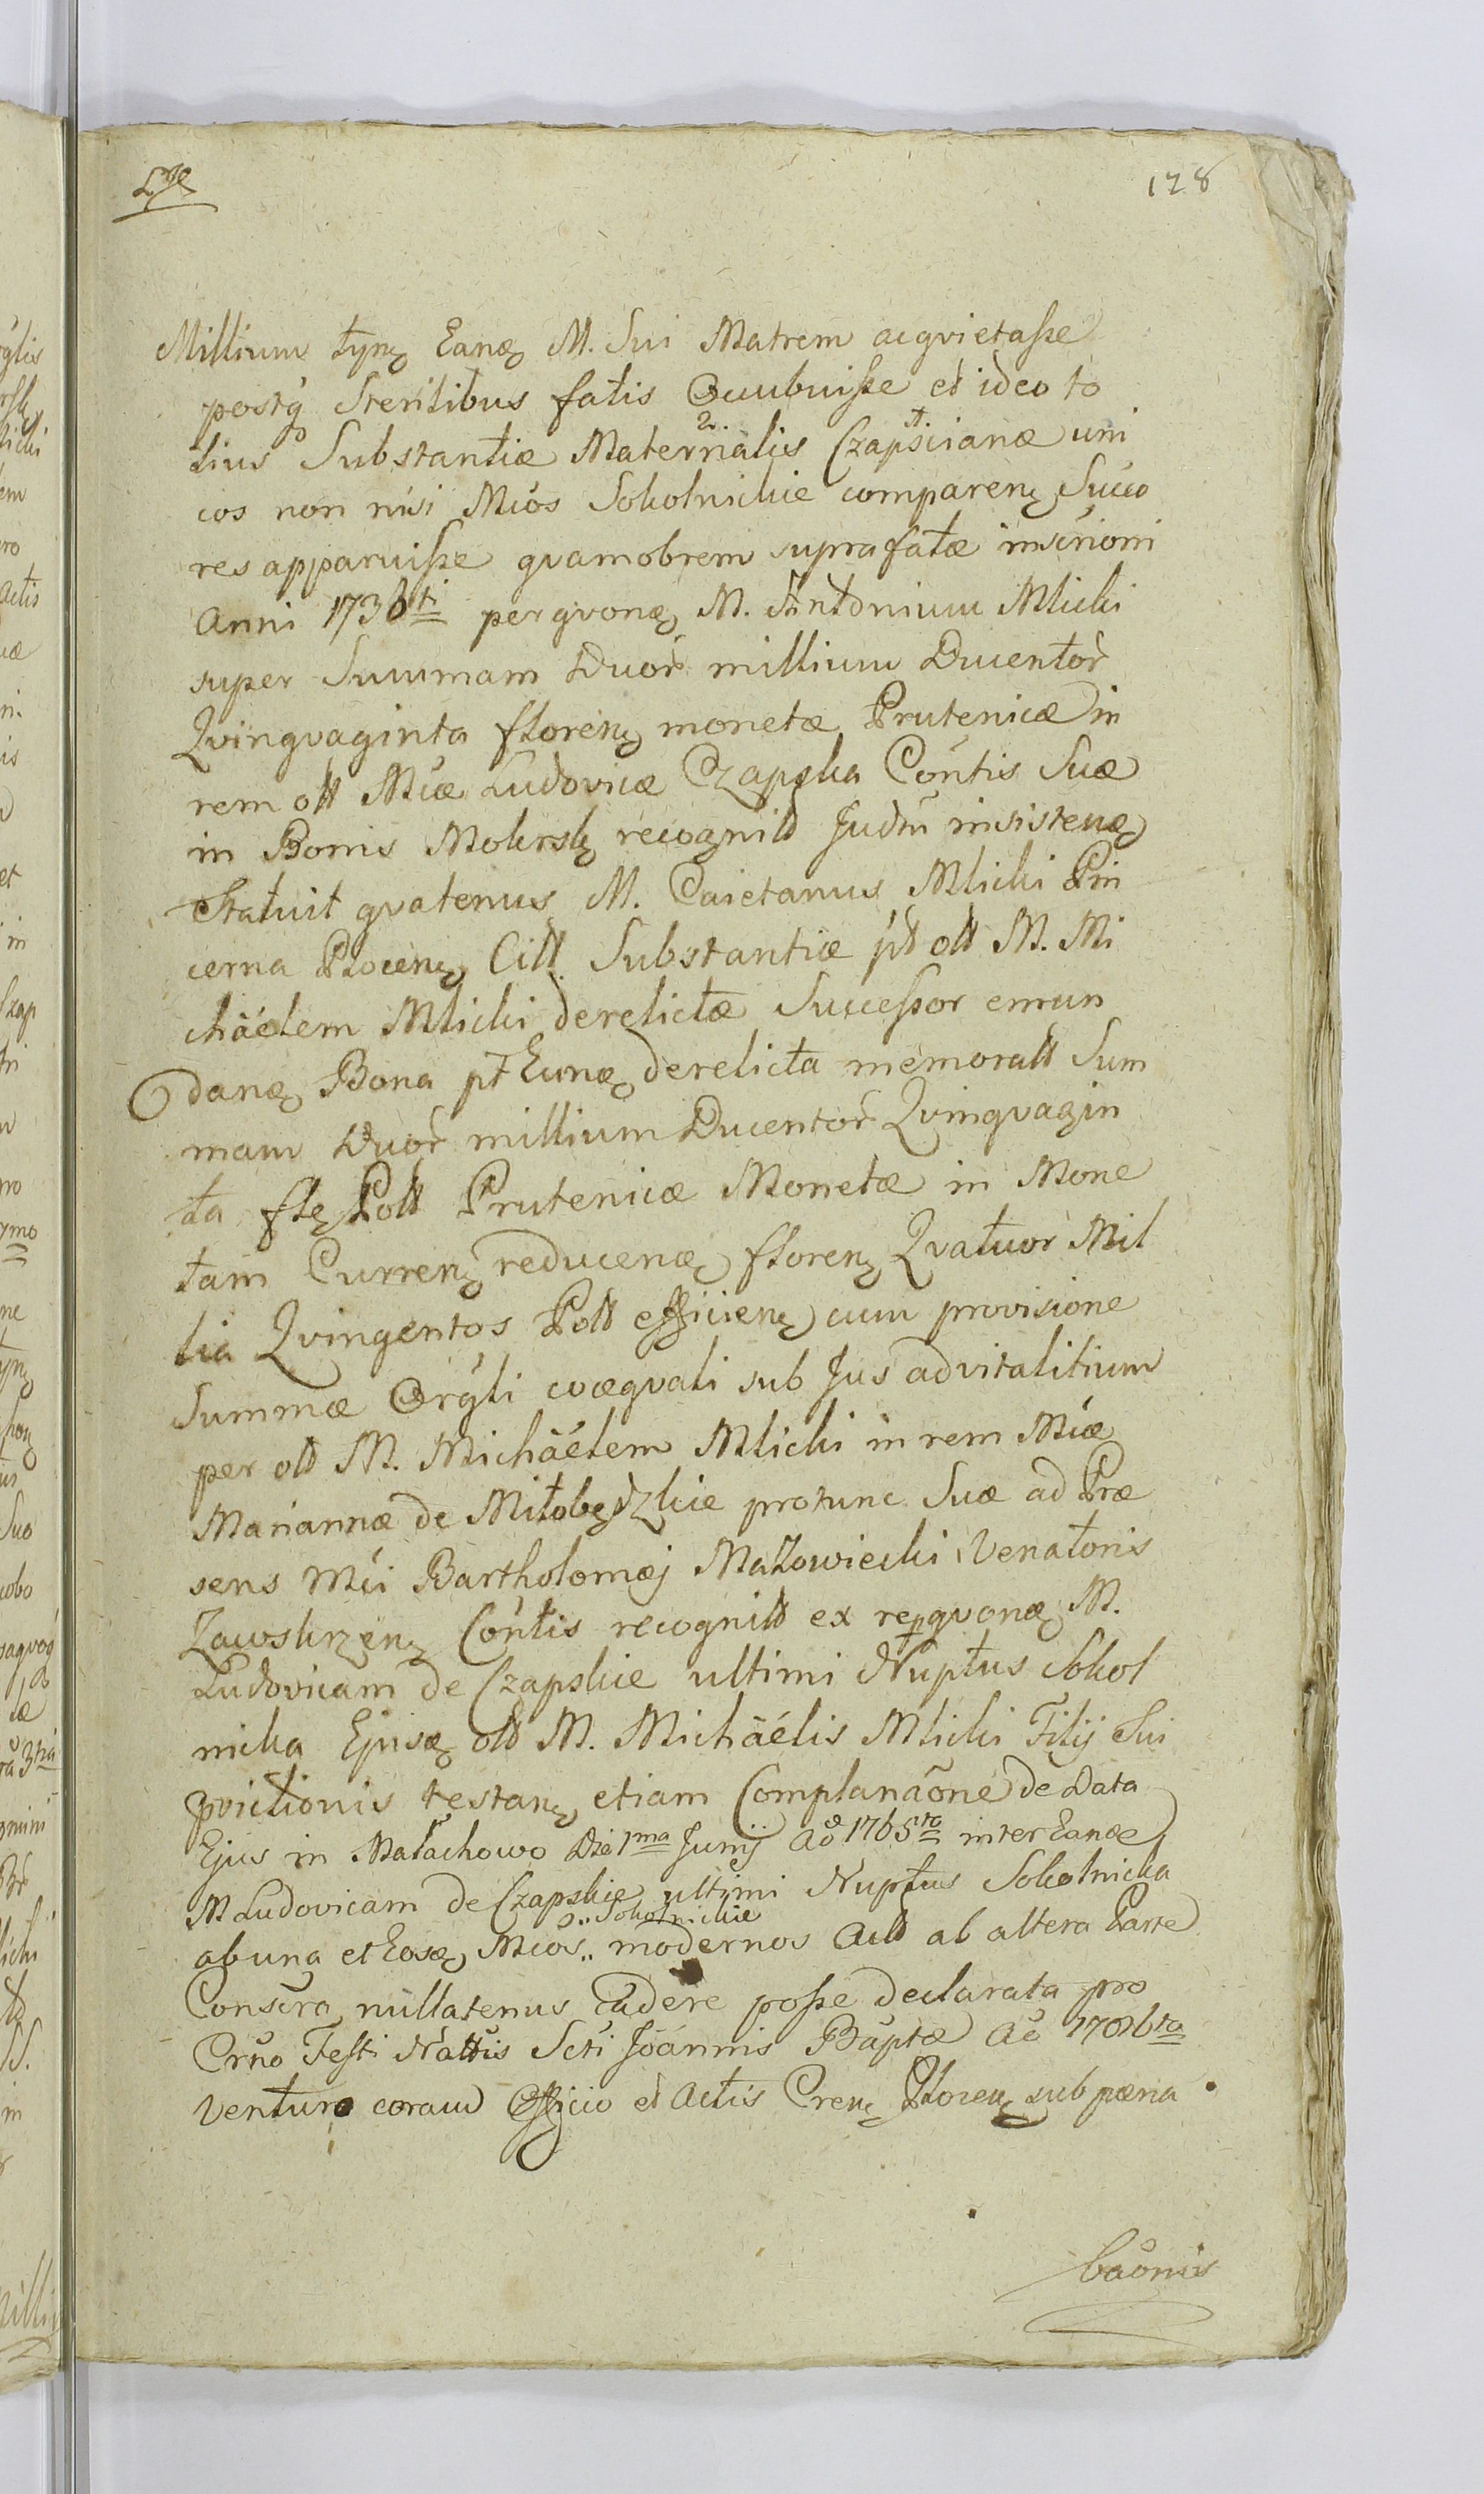 128
Millium tynę Eanę M. Sui Matrem acqvietaſse
postq́ Sterilibus fatis Occubuiſse et ideo to
tius Substantiæ Maternalis Czapscianæ uni
cos non nisi Mćos Sokolnickie comparenę Succo
res apparuiſse qvamobrem suprafatæ inscrioni
Anni 1736ti per qvonę M. Antonium Mlicki
super Summam Duoř millium Ducentoř
Qvinqvaginta florenę monetæ Prutenicæ in
rem oll Mćæ Ludovicæ Czapska Cóntis Suæ
in Bonis Mokrskę recognill Judm̃ insistenę
Statuit qvatenus M. Caietanus Mlicki Pin
cerna Plocenę Cill Substantiæ pt oll M. Mi
chäelem Mlicki derelictæ Succeſsor emun
danę Bona pt Eunę derelicta memorall Sum
mam Duoř millium Ducentoř Qvinqvagin
ta flę Poll Prutenicæ Monetæ in Mone
tam Currenę reducenę florenę Qvatuor Mil
lia Qvingentos Poll efficienę cum provisione
Summæ Orǵli coæqvali sub Jus advitalitium
per oll M. Michäelem Mlicki in rem Mćæ
Mariannæ de Miłobędzkie protunc Suæ ad Præ
sens Mći Bartholomæj Mazowiecki Venatoris
Zawskrzenę Cóntis recognill ex reqvonę M.
Ludovicam de Czapskie ultimi Nuptus Sokol
nicka Ejusę oll M. Michäelis Mlicki Filij Sui
prictionis testanę etiam Complanaõne de Data
Ejus in Małachowo Die 1ma Junij Aõ 1765to inter Eanę
M Ludovicam de Czapskie ultimi Nuptus Sokolnicka
ab una et Eosę Mćos Sokolnickie modernos Acll ab altera Parte
Conscra nullatenus Cadere poſse declarata pro
Crño Festi Nattis Scti Joannis Baptæ Aõ 1776to
Venturo coram Officio et Actis Crenę Plocenę sub pæna
baõnis